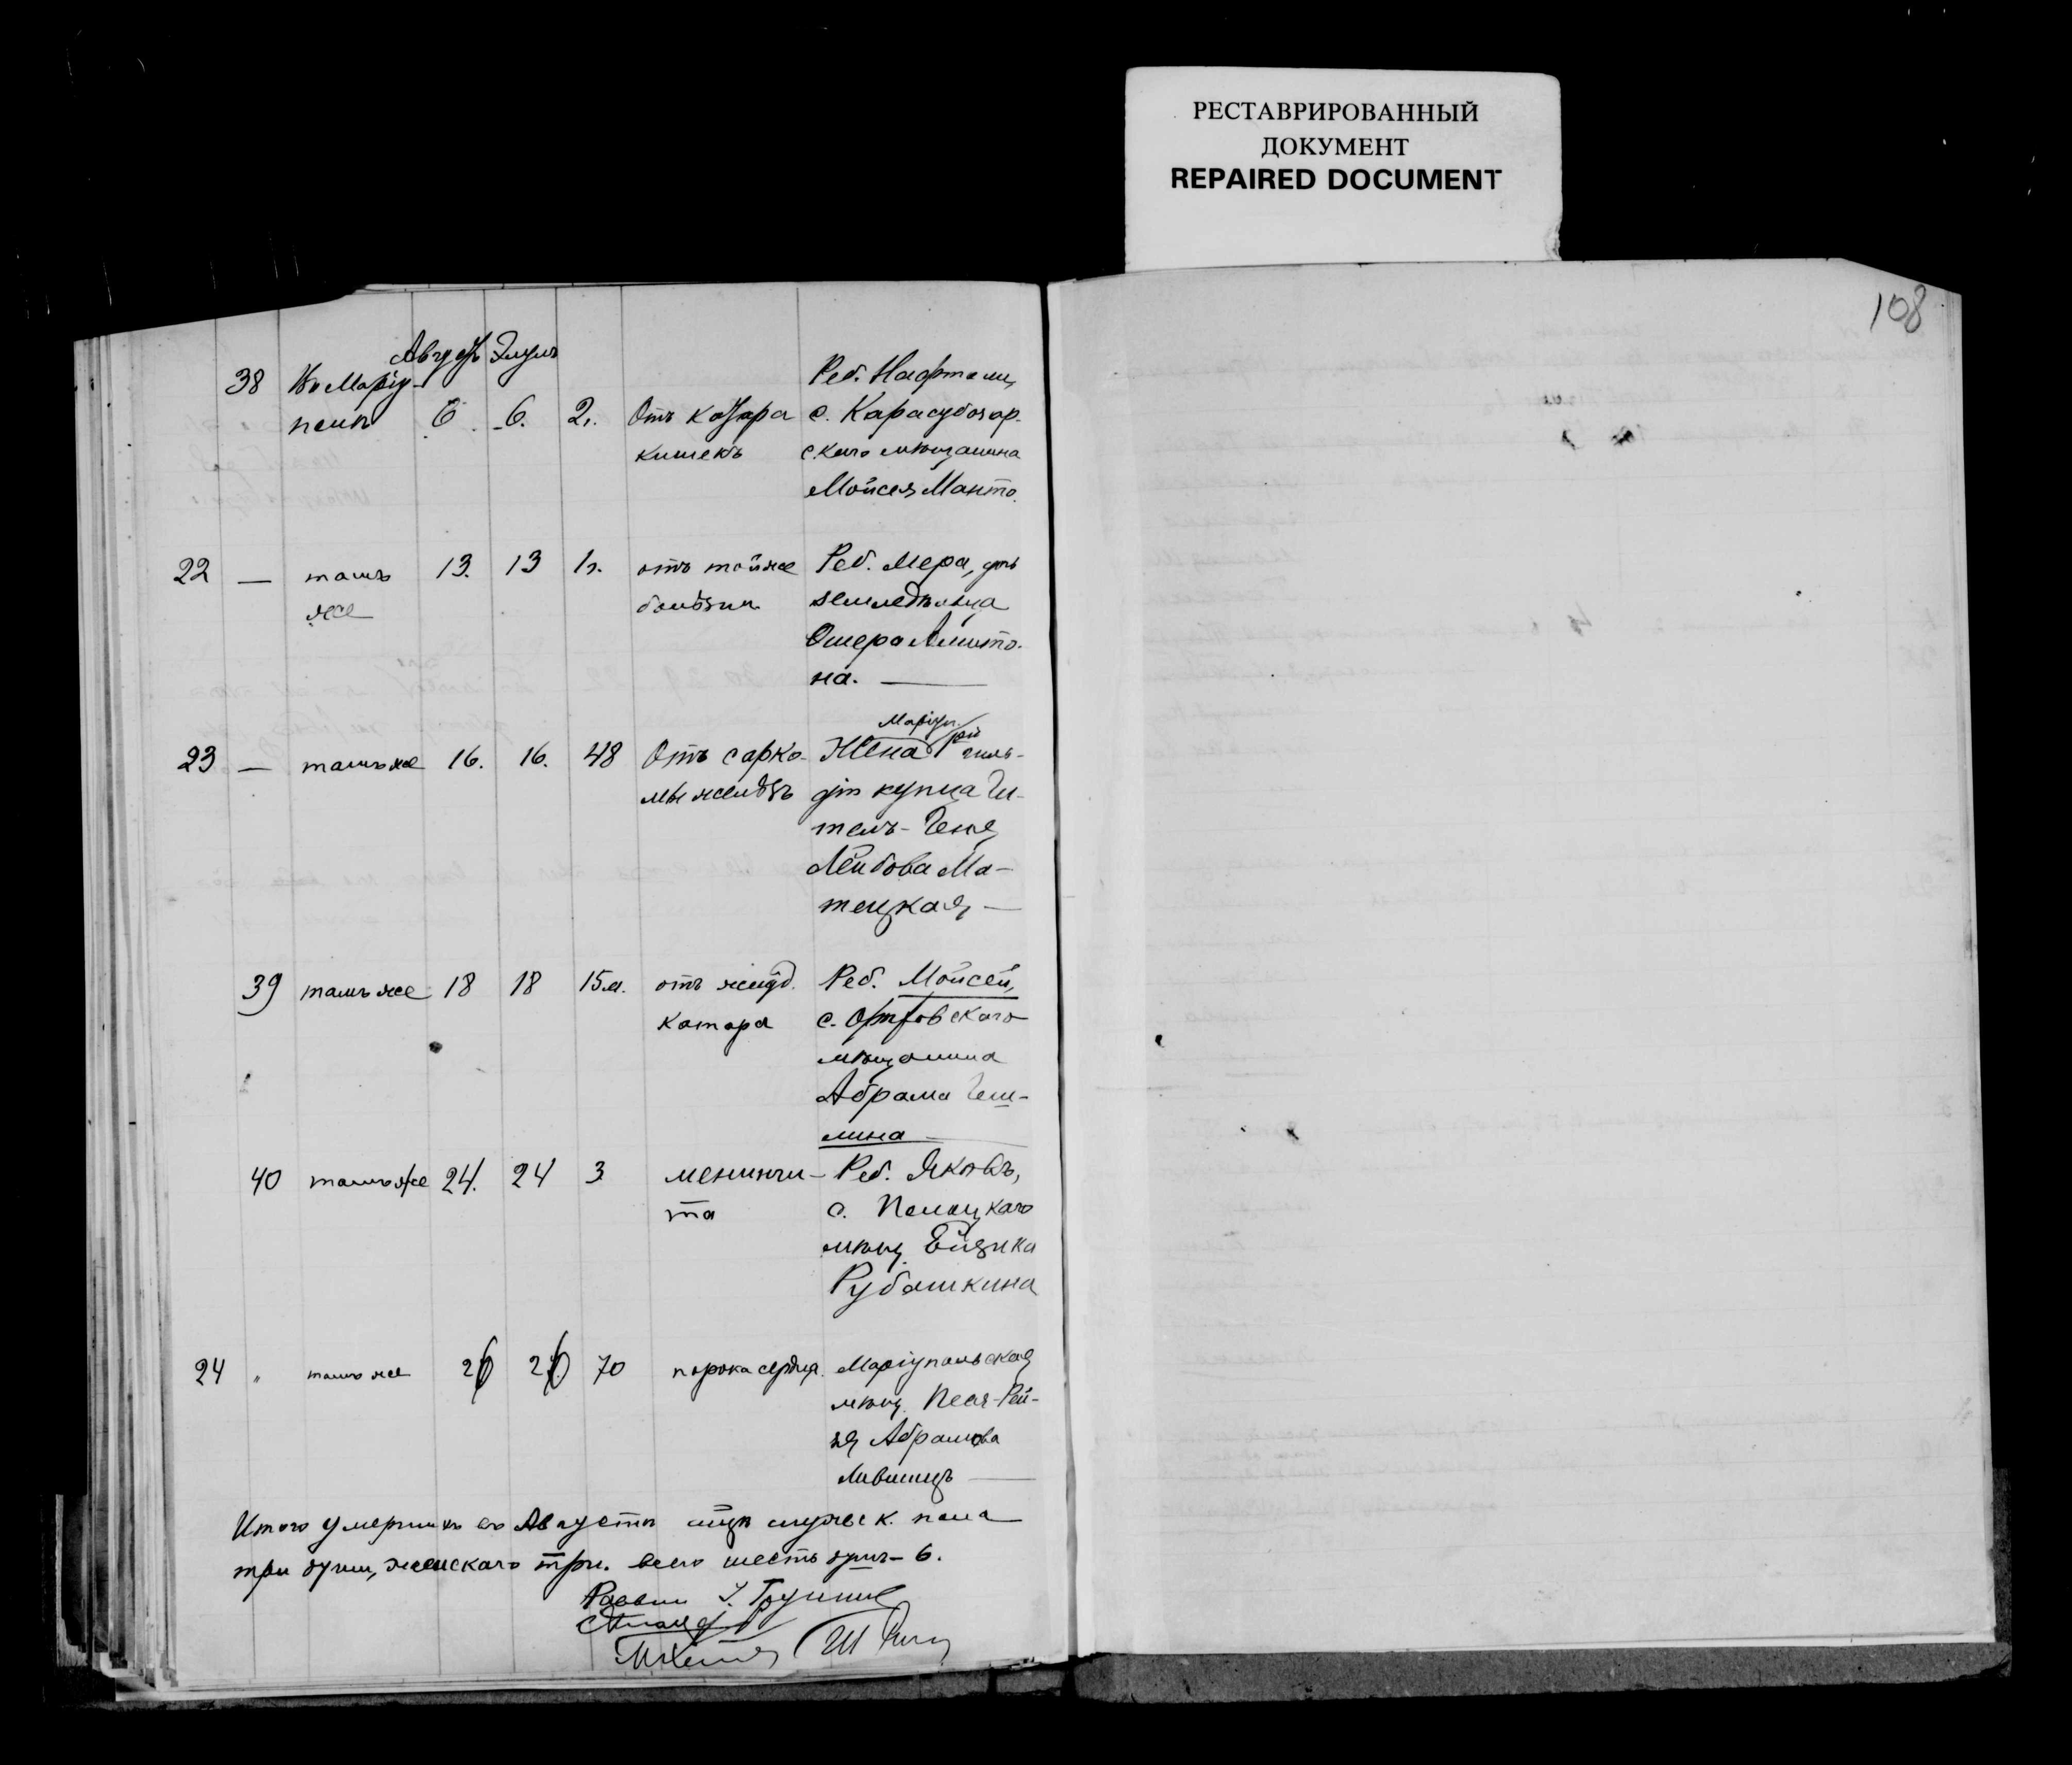 РЕСТАВРИРОВАННЫЙ
ДОКУМЕНТ
REPAIRED DOCUMENT
108
Августъ Элулъ
38 Въ Маріу-
полѣ 6. 6. 2г. Отъ катара
кишекъ
Реб. Нафтали,
с. Карасубазар-
скаго мѣщанина
Мойсея Манто.
22 — тамъ
же 13. 13 1г. отъ той же
болѣзни
Реб. Мера, дочь
земледѣльца
Ошера Алшто-
на. —
23 — тамъ же 16. 16. 48 Отъ сарко-
мы желудк
Маріуп.
Жена 1ой гиль-
діи купца Ги-
тель-Геня
Лейбова Ма-
тецкая —
39 тамъ же 18 18 15 м. отъ желуд.
катара
Реб. Мойсей,
с.
мѣщанина
Абрама Геш-
лина
40 тамъ же 24. 24 3 менинги-
та
Реб. Яковъ,
с. Полоцкаго
мѣщ. Ейзика
Рубашкина
24 " тамъ же 26 26 70 порока сердца.
Маріупольская
мѣщ. Песя-Рей-
зя Абрамова
Лившицъ —
Итого умершихъ въ Августѣ мцѣ мужеск. пола
три души, женскаго три. всего шесть душъ - 6.
Раввин